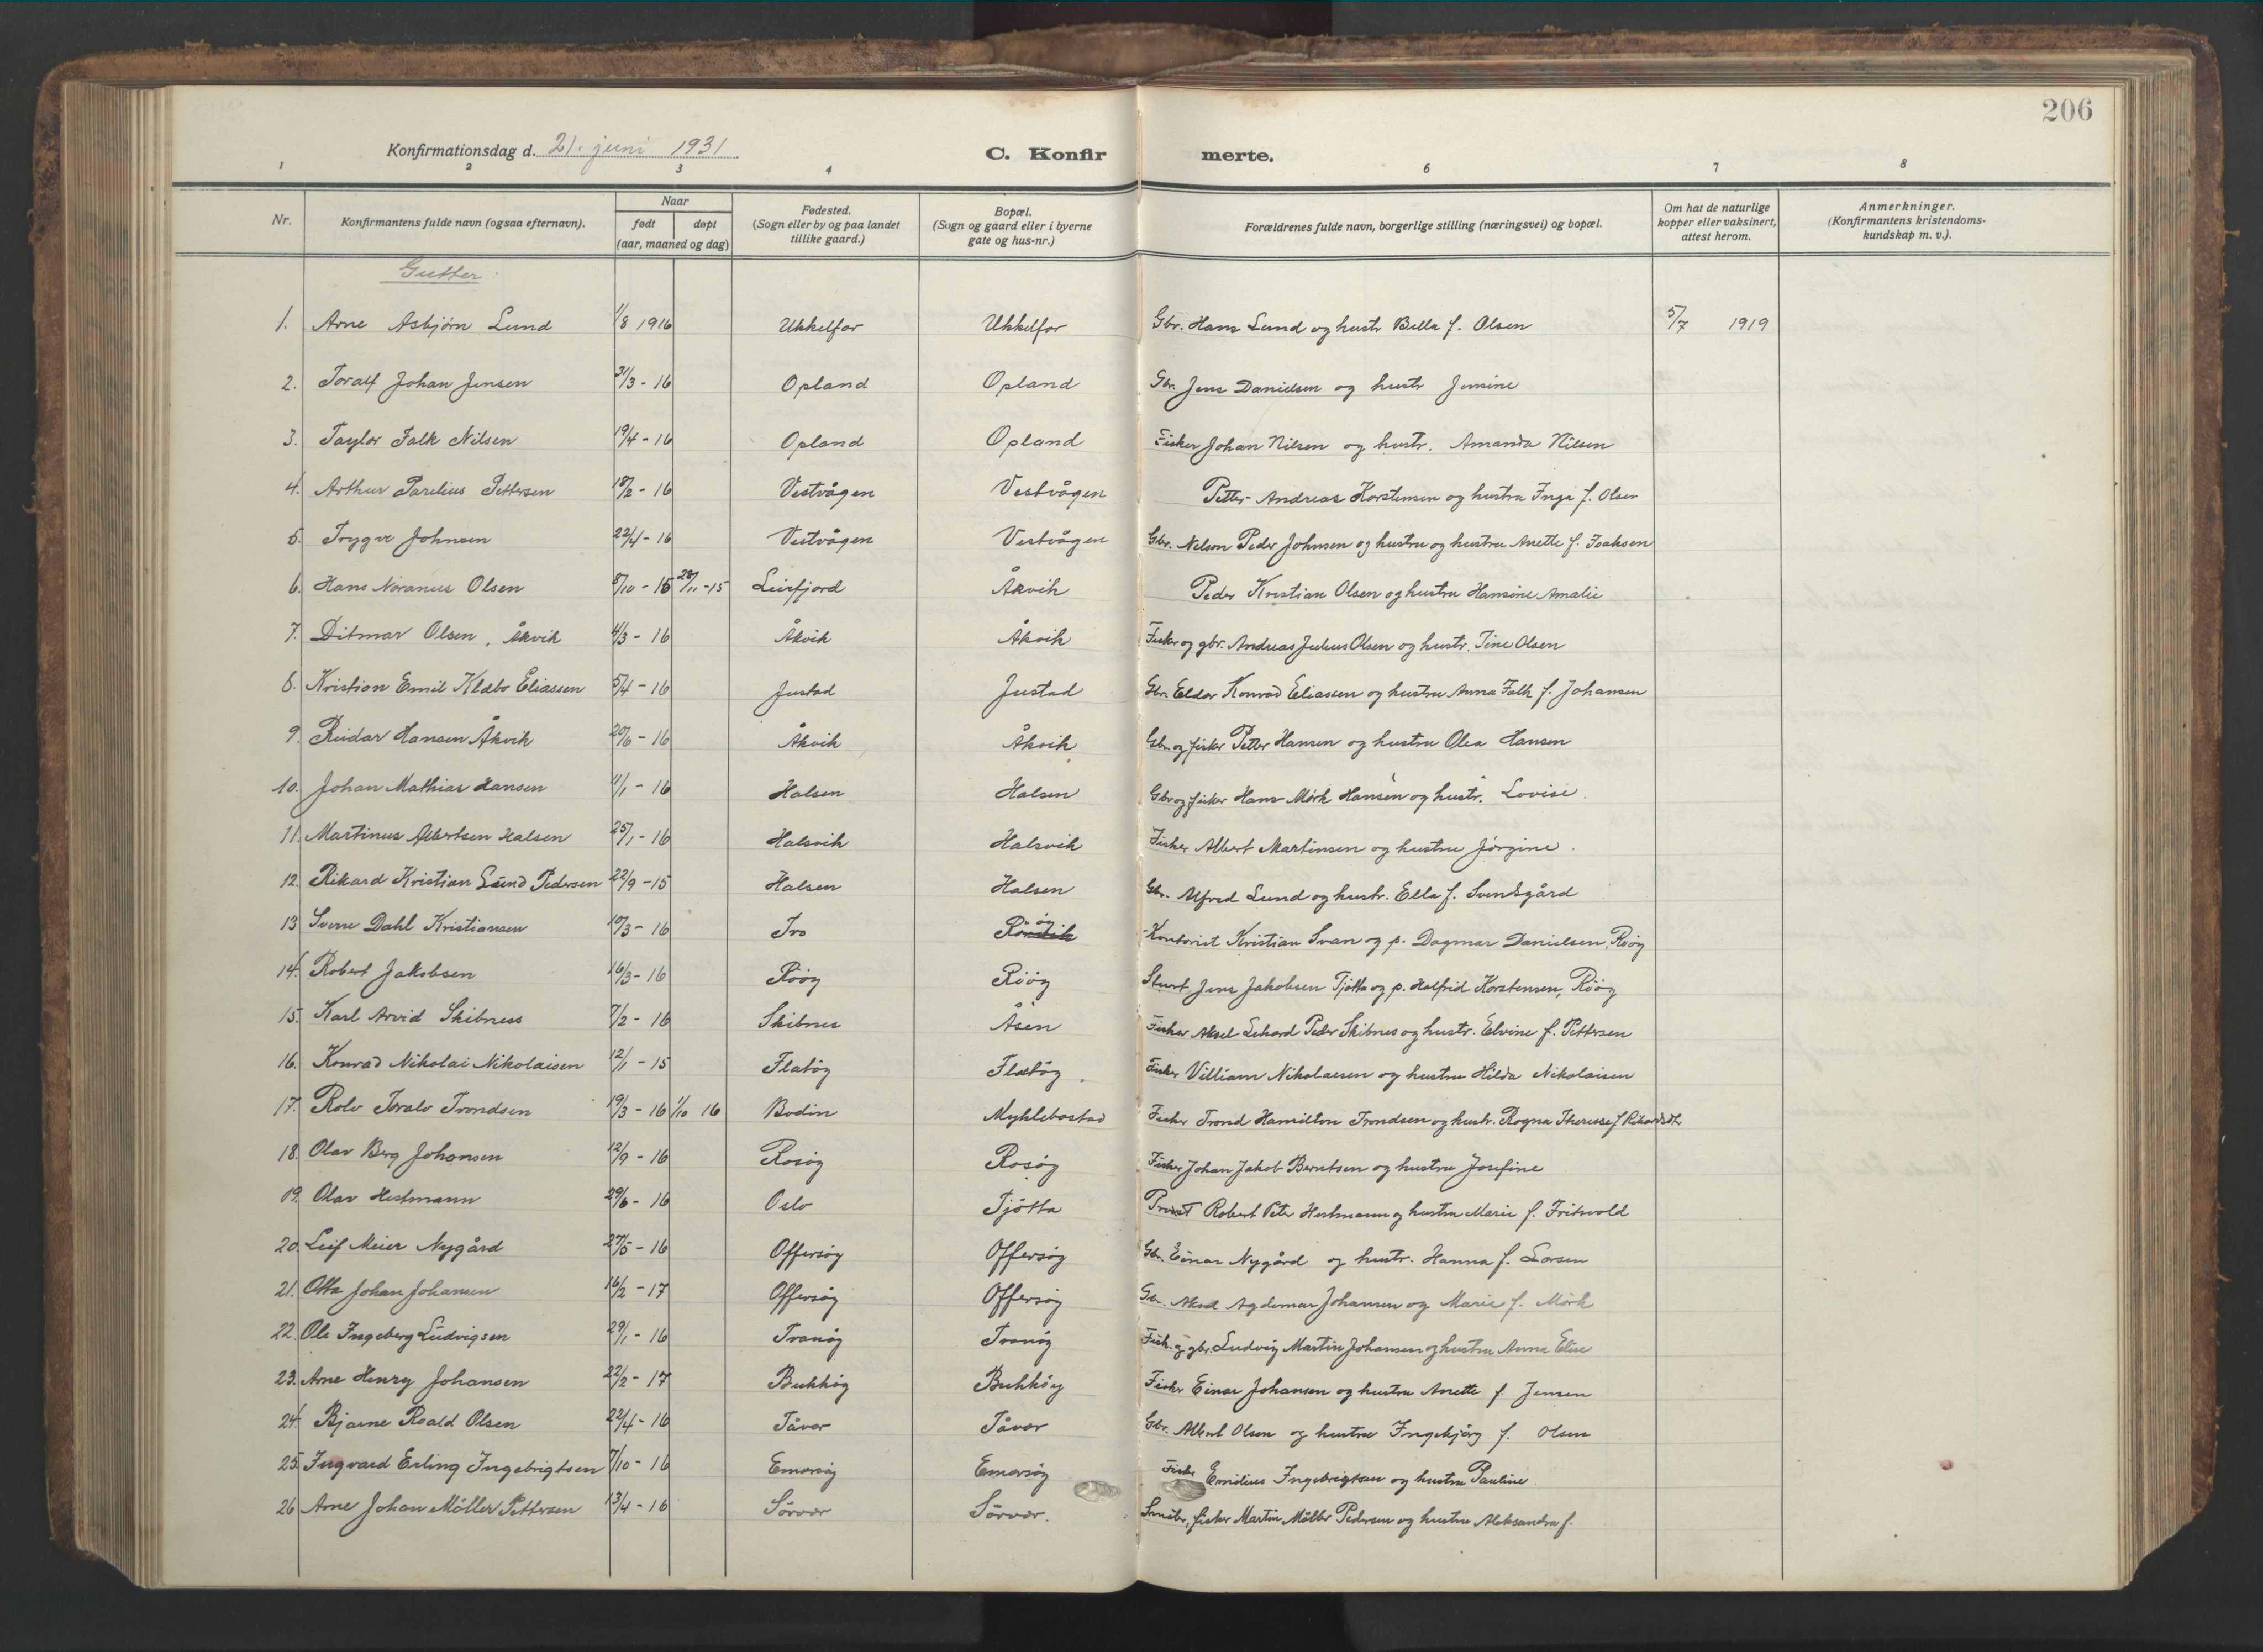 206
Konfirmationsdag d. 21. juni 1931
C. Konfirmerte.
1 2 3 4 6 7 8
Nr. Konfirmantens fulde navn (ogsaa efternavn). Naar født døpt (aar, maaned og dag) Fødested. (Sogn eller by og paa landet tillike gaard.) Bopæl. (Sogn og gaard eller i byerne gate og hus-nr.) Forældrenes fulde navn, borgerlige stilling (næringsvei) og bopæl. Om hat de naturlige kopper eller vaksinert, attest herom. Anmerkninger. (Konfirmantens kristendoms-kundskap m. v.).
Gutter:
1. Arne Asbjørn Lund 1/8 1916 Ukkelfor Ukkelfor Gbr. Hans Lund og hustr Bella f. Olsen 5/7 1919
2. Toralf Johan Jensen 31/3 - 16 Opland Opland Gbr. Jens Danielsen og hustr Jensine
3. Taylor Falk Nilsen 19/4 - 16 Opland Opland Fisker Johan Nilsen og hustr. Amanda Nilsen
4. Arthur Parelius Pettersen 18/2 - 16 Vestvågen Vestvågen Petter Andreas Korstensen og hustru Inga f. Olsen
5. Trygve Johnsen 22/4 - 16 Vestvågen Vestvågen Gbr. Nelson Peder Johnsen og hustru og hustru Anette f. Isaksen
6. Hans Noranus Olsen 8/10 - 15 28/11 - 15 Leirfjord Åkvik Peder Kristian Olsen og hustru Hansine Amalie
7. Ditmar Olsen, Åkvik 4/3 - 16 Åkvik Åkvik Fisker og gbr. Andreas Julius Olsen og hustr. Tine Olsen
8. Kristian Emil Klæbo Eliassen 5/4 - 16 Justad Justad Gbr. Eldor Konrad Eliassen og hustru Anna Falk f. Johansen
9. Reidar Hansen Åkvik 20/6 - 16 Åkvik Åkvik Gbr. og fisker Petter Hansen og hustru Olea Hansen
10. Johan Mathias Hansen 11/1 - 16 Halsen Halsen Gbr og fisker Hans Mørk Hansen og hustr. Lovise.
11. Martinus Albertsen Halsen 25/1 - 16 Halsvik Halsvik Fisker Albert Martinsen og hustru Jörgine.
12. Rikard Kristian Lund Pedersen 22/9 - 15 Halsen Halsen Gbr. Alfred Lund og hustr. Ella f. Svendsgård
13 Sverre Dahl Kristiansen 10/3 - 16 Tro Kontorist Kristian Svan og p. Dagmar Danielsen, Röög
14. Robert Jakobsen 16/3 - 16 Röög Röög Stuert Jens Jakobsen Tjøtta og p. Halfrid Korstensen, Röög
15. Karl Arvid Skibness 7/2 - 16 Skibnes Åsen Fisker Aksel Edvard Peder Skibnes og hustr. Elvine f. Pettersen
16. Konrad Nikolai Nikolaisen 12/1 - 15 Flatög Flatög. Fisker Villiam Nikolaesen og hustru Hilda Nikolaisen
17. Rolv Toralv Trondsen 19/3 - 16 1/10 16 Bodin Myklebostad Fisker Trond Hamilton Trondsen og hustr. Ragna Therese f Rikardsdtr
18. Olav Berg Johansen 12/9 - 16 Rosög Rosög Fisker Johan Jakob Berntsen og hustru Josefine
19. Olav Hestmann 29/6 - 16 Oslo Tjötta Provst Robert Peter Hestmann og hustru Marie f. Fritsvold
20. Leif Meier Nygård 27/5 - 16 Offersög Offersög Gbr. Einar Nygård og hustr. Hanna f. Larsen
21. Otto Johan Johansen 16/2 - 17 Offersög Offersög Gbr. Aksel Agdemar Johansen og Marie f. Mörk
22. Ole Ingeberg Ludvigsen 29/1 - 16 Tranög Tranög Fisk. og gbr. Ludvig Martin Johansen og hustru Anna Elise
23. Arne Henry Johansen 22/2 - 17 Bukkög Bukköy Fisker Einar Johansen og hustru Anette f. Jensen
24. Bjarne Roald Olsen 22/4 - 16 Tåvær Tåvær Gbr. Albert Olsen og hustru Ingebjörg f. Olsen
25. Ingvard Erling Ingebrigtsen 7/10 - 16 Emarsög Emarsög Fisker Emilius Ingebrigtsen og hustru Pauline.
26 Arne Johan Möller Pettersen 13/4 - 16 Sörvær Sörvær. Småbr. fisker Martin Möller Pedersen og hustru Aleksandra f.